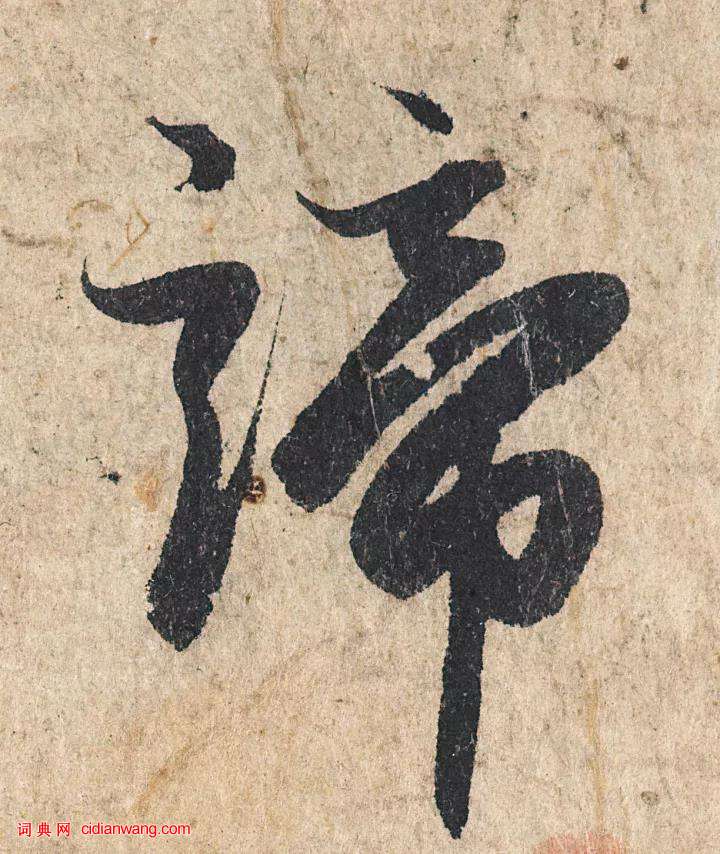 諦
词典网 cidianwang.com